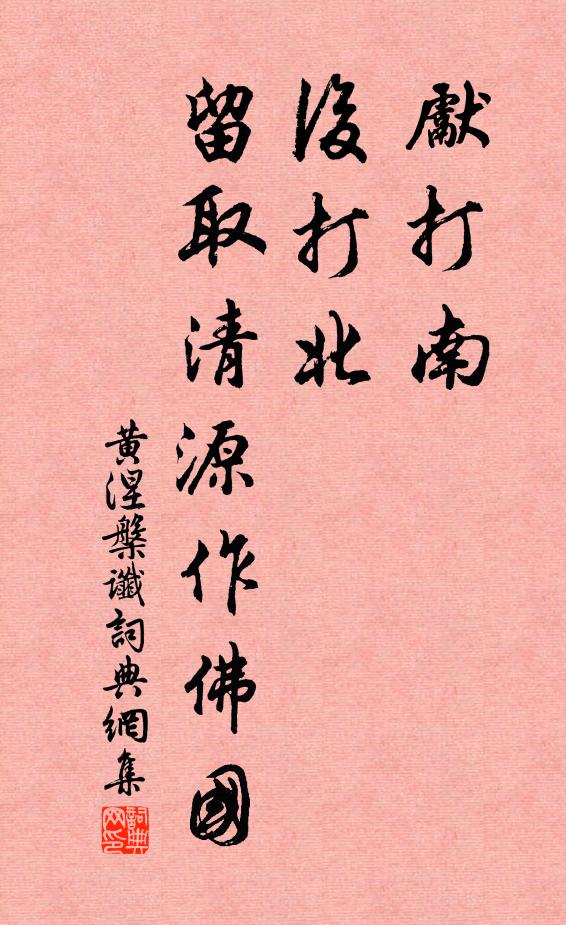 獻打南
後打北
留取清源作佛國
黃涅槃讖詞典網集
詞典网印